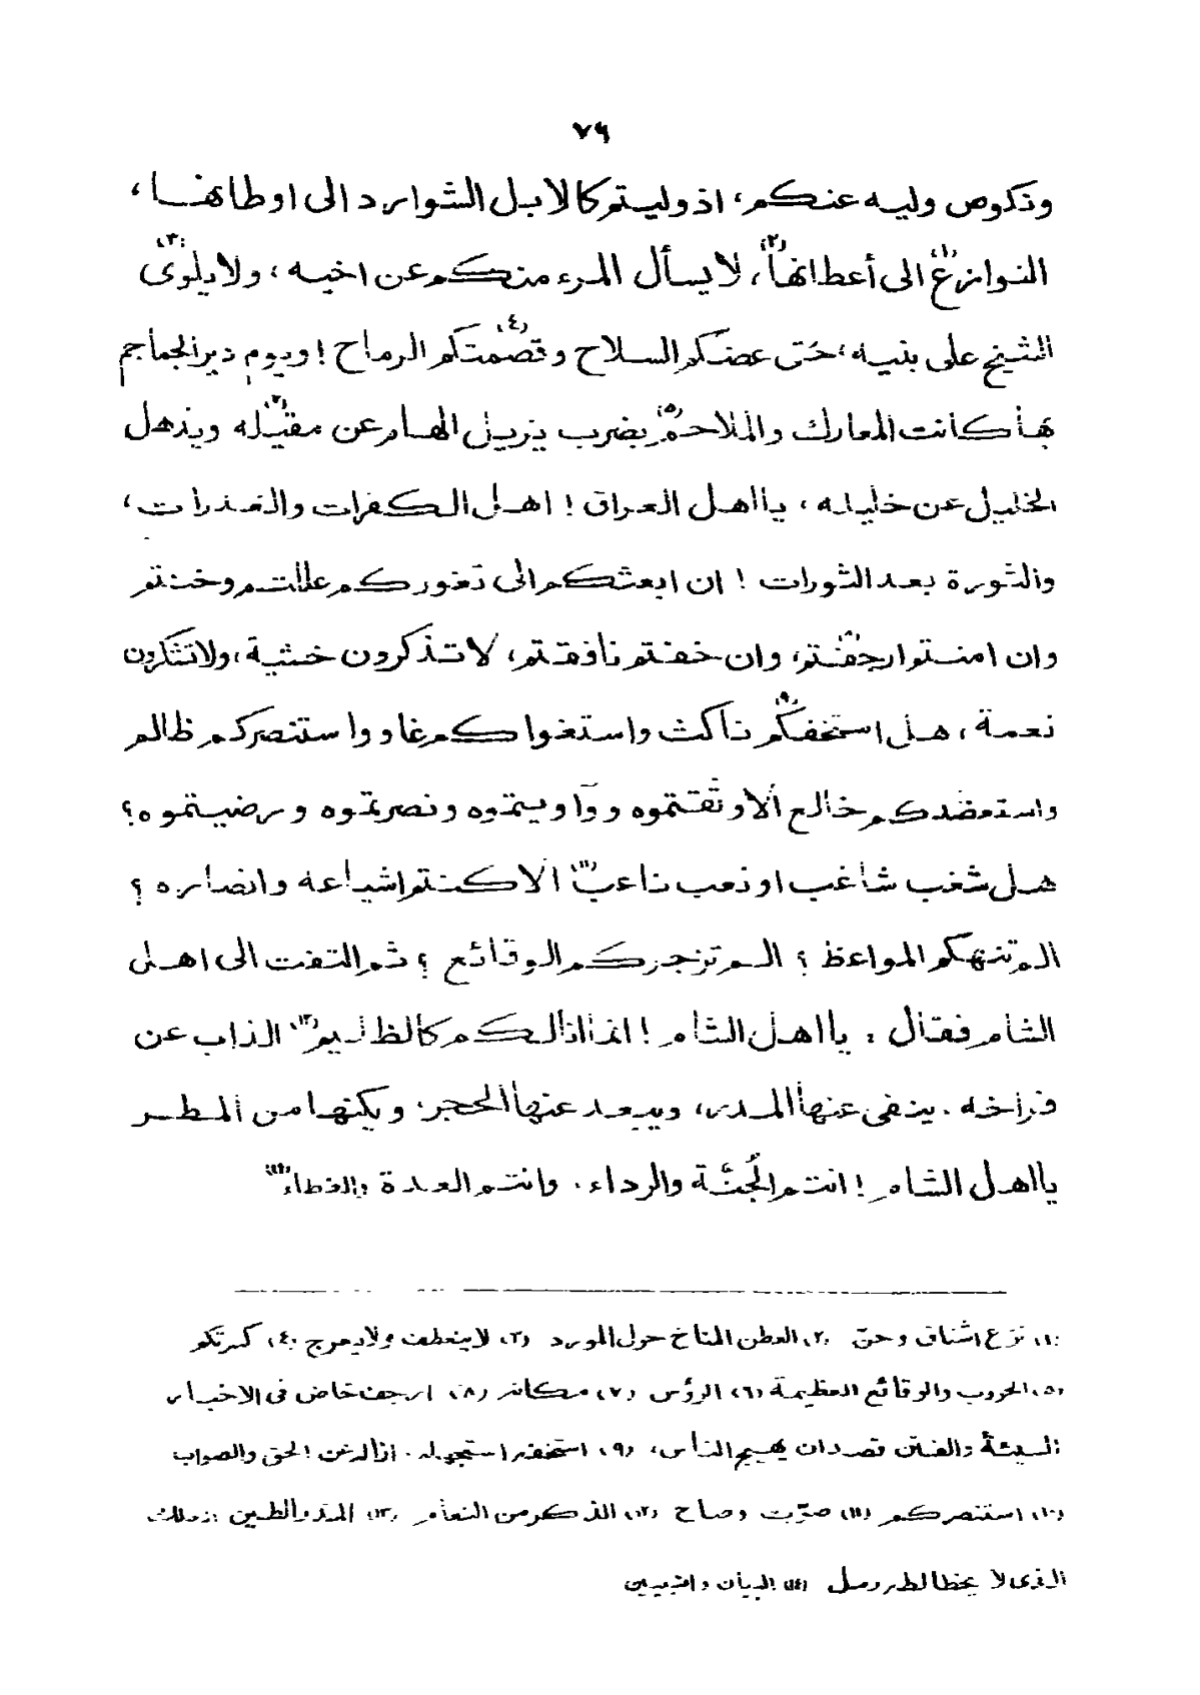 ٧٩
ونكوص وليه عنكم، اذ وليتم كالابل الشوارد الى اوطانها،
النوازع(١) الى أعطانها(٢)، لا يسأل المرء منكم عن اخيه، ولا يلوى(٣)
الشيخ على بنيه، حتى عضكم السلاح وقصمتكم(٤) الرماح! ويوم دير الجماجم
بها كانت المعارك والملاحم(٥) بضرب يزيل الهام عن مقيله(٧) ويذهل
الخليل عن خليله، يا اهل العراق! اهل الكفرات والغدرات،
والثورة بعد الثورات! ان ابعثكم الى ثغوركم غللتم وخنتم
وان امنتم ارجفتم(٨)، وان خفتم نافقتم، لا تذكرون خشية، ولا تشكرون
نعمة، هل استخفكم(٩) ناكث واستغواكم غاو واستنصركم ظالم
واستعضدكم خالع ألا وثقتموه وآويتموه ونصرتموه ورضيتموه؟
هل شغب شاغب او نعب ناعب(١١) ألا كنتم اشياعه وانصاره؟
الم تنهكم المواعظ؟ الم تزجركم الوقائع؟ ثم التفت الى اهل
الشام فقال، يا اهل الشام! انما انا لكم كالظليم(١٢) الذاب عن
فراخه. ينفى عنها المدر، ويبعد عنها الحجر، ويكنها من المطر
يا اهل الشام! انتم الجُنّة والرداء. وانتم العدة والغطاء(١٤)
(١) نزع اشتاق وحنّ (٢) العطن المناخ حول المورد (٣) لا ينعطف ولا يعرج (٤) كسرتكم
(٥) الحروب والوقائع العظيمة (٦) الرؤس (٧) مكانه (٨) ارجف خاض فى الاخبار
السيئة والفتن قصد ان يهيج الناس، (٩) استخفه استجهله. ازاله عن الحق والصواب
(١٠) استنصركم (١١) صوّت وصاح (١٢) الذكر من النعام (١٣) المدر الطين
الذى لا يخالطه رمل (١٤) البيان والتبيين